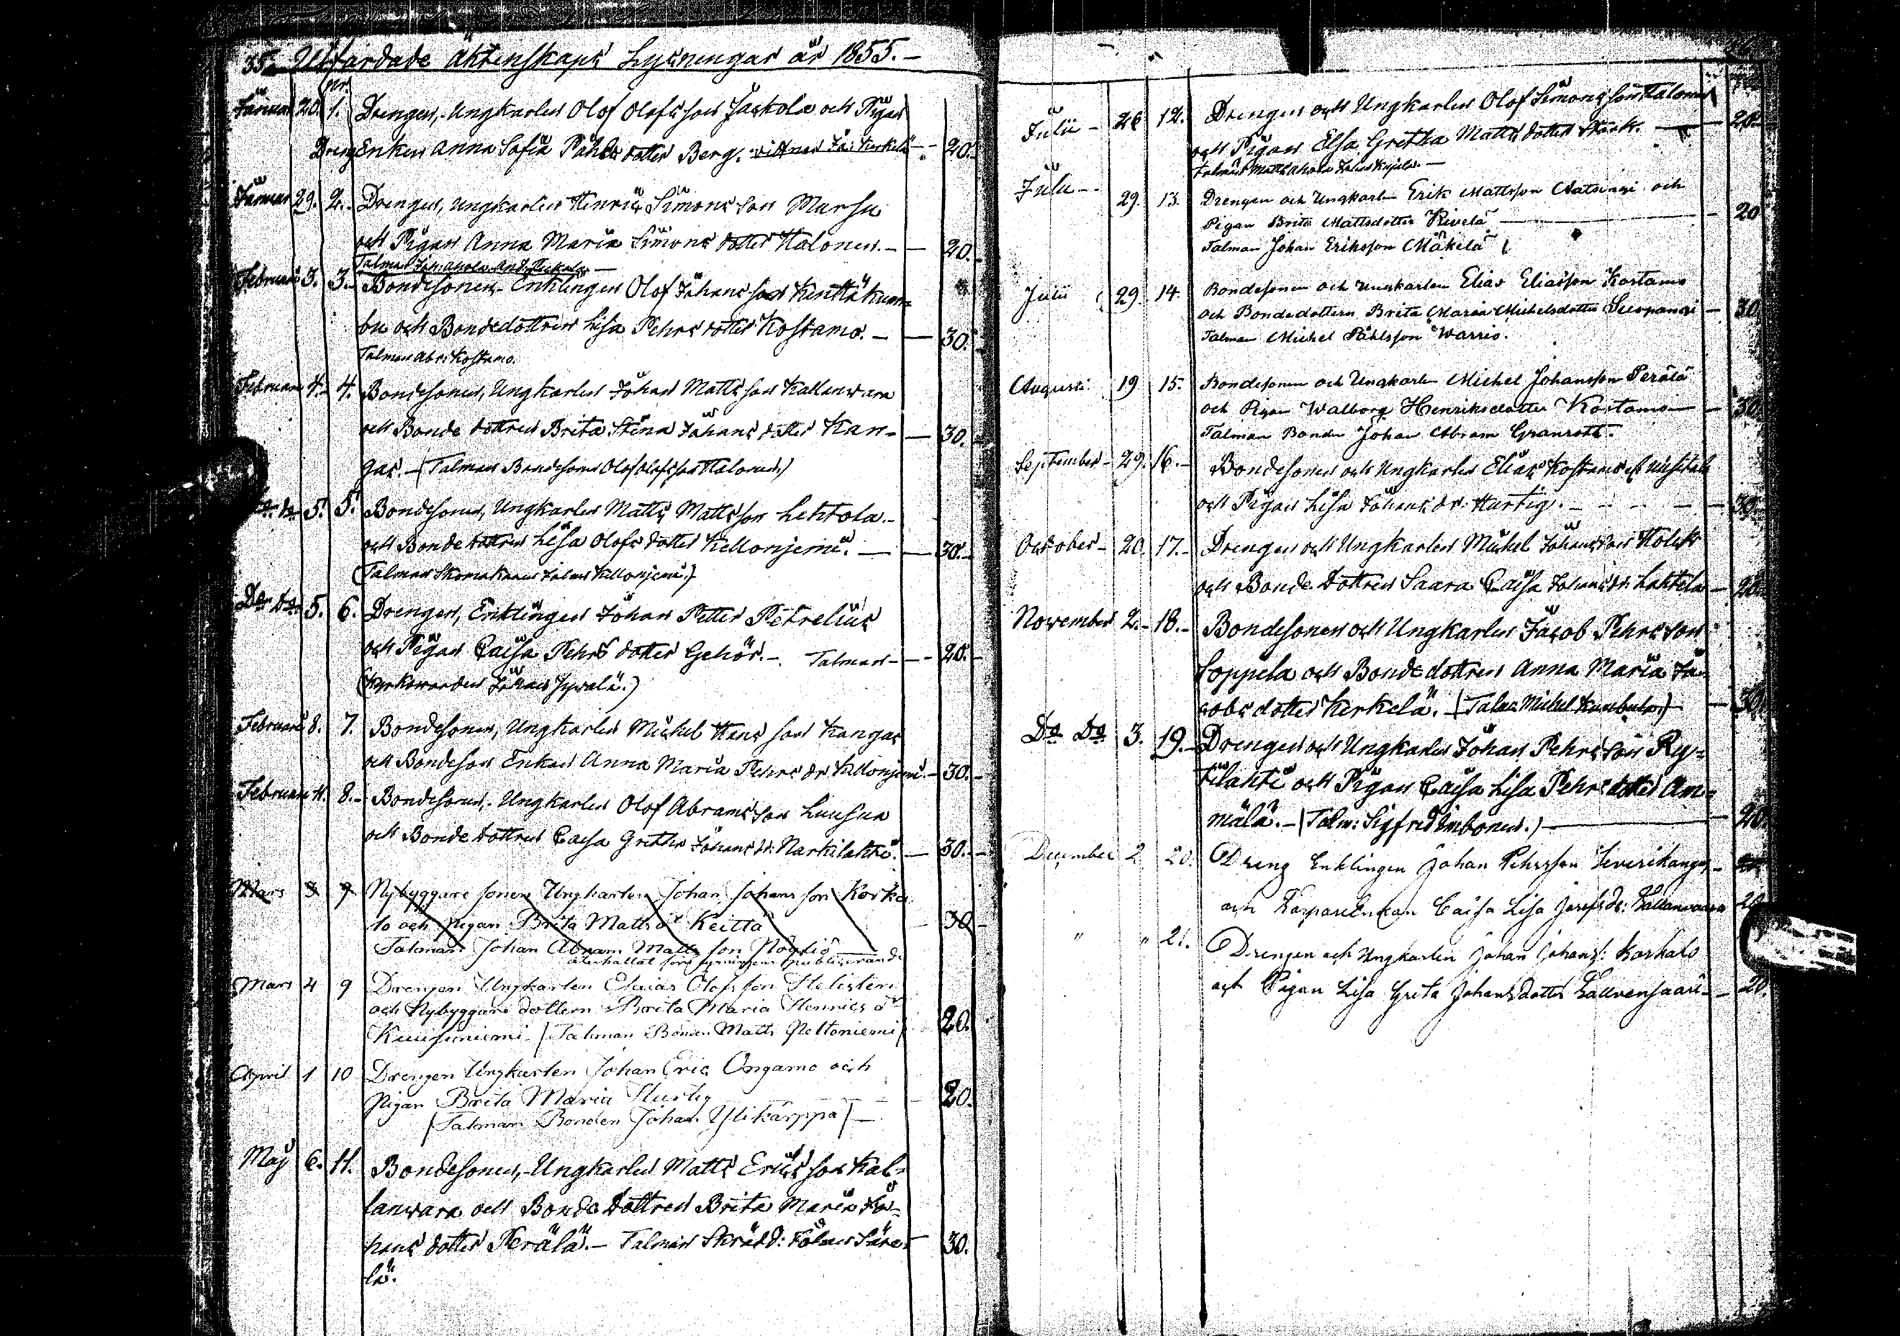 35. Utfärdade Äktenskaps Lysningar år 1855.-
nr.
Januari 20. 1. Drengen, Ungkarlen Olof Olofsson Jaskola och Pigan
Dreng Enkan Anna Sofia Påhls dotter Berg. 20.
Januari 29. 2. Drengen, Ungkarlen Henric Simons son Marsu
och Pigan Anna Maria Simons dotter Halonen. 20.
Februari 3. 3. Bondesonen, Enklingen Olof Johans son Kenttä
och Bondedottren Lisa Pehrs dotter Kostamo. 30.
Talman Abr: Kostamo.
Februari 4. 4. Bondesonen, Ungkarlen Johan Matts son Kallanwara
och Bonde dottren Brita Stina Johans dotter Kan-
gas. (Talman Bondesonen Olof Olofsson Halonen) 30.
Do Do 5. 5. Bondesonen, Ungkarlen Matts Matts son Lehtola
och Bonde dottren Lisa Olofs dotter Kellonjemi. 30.
(Talman Skomakaren Kellonjemi.)
Do Do 5. 6. Drengen, Enklingen Johan Petter Petrelius
och Pigan Caisa Pehrs dotter Gehör. Talman 20.
(Kyrkowärden Johan Jywälä.)
Februari 8. 7. Bondesonen, Ungkarlen Mickel Hans son Kangas
och Bondeson Enkan Anna Maria Pehrs dr Kellonjemi. 30.
Februari 11. 8. Bondesonen, Ungkarlen Olof Abrams son Luusua
och Bonde dottren Caisa Gretha Johans dr: Narkilahti. 30.
Mars 9 Nybyggare sonen Ungkarlen Johan Johans son Korka
lo och Pigan Brita Matts dr Keitta 30
Talman Johan Abram Matts son
Mars 4 9 Drengen Ungkarlen Olofsson Helisten
och Nybyggare dottern Brita Maria Henrics dr
Kuusiniemi (Talman Bonden Matts Peltoniemi) 20.
April 1 10 Drengen Ungkarlen Johan Eric Ongamo och
Pigan Brita Maria Hurtig 20.
(Talman Bonden Johan Ylikärppä)
Maj 6. 11. Bondesonen, Ungkarlen Matts Erics son Kal-
lanwara och Bonde dottren Brita Maria Jo-
hans dotter Perälä. Talman Skrädd: 30.
lä.
Julii 26 12. Drengen och Ungkarlen Olof Simons son Halonen
och Pigan Elsa Gretha Matts dotter Stark. 20.
Julii 29. 13. Drengen och Ungkarlen Erik Mattsson Aatsingi och
Pigan Brita Mattsdotter Kivelä 20
Talman Johan Eriksson Mäkelä
Julii 29. 14. Bondesonen och Ungkarlen Elias Eliasson Kostamo
och Bondedottern Brita Maria Michelsdotter Suopangi 30
Talman Michel Påhlsson Warrio.
Augusti 19 15. Bondesonen och Ungkarlen Michel Johansson Perälä
och Pigan Walborg Henriksdotter Kostamo 30.
Talman Bonden Johan Abram Granroth.
September 29. 16. Bondesonen och Ungkarlen Elias Kostamo
och Pigan Lisa Johans dr: Hurtig. 30.
October 20. 17. Drengen och Ungkarlen Mickel Johans son
och Bonde dottren Saara Caisa Johans dr: Lahtela 20.
November 2. 18. Bondesonen och Ungkarlen Jacob Pehrs son
Soppela och Bonde dottren Anna Maria Ja-
cobs dotter Kerkelä. 30.
Do Do 3. 19. Drengen och Ungkarlen Johan Pehrs son Ry-
tilahti och Pigan Caisa Lisa Pehrs dotter Äm-
mälä. (Talm: Sigfred Imbonen.) 20.
December 2 20. Dreng Enklingen Johan Pehrsson
och Enkan Caisa Lisa Josefs dr: Kallanwaara 20
" " 21. Drengen och Ungkarlen Johan Johans: Korkalo
och Pigan Lisa Greta Johans dotter 20.